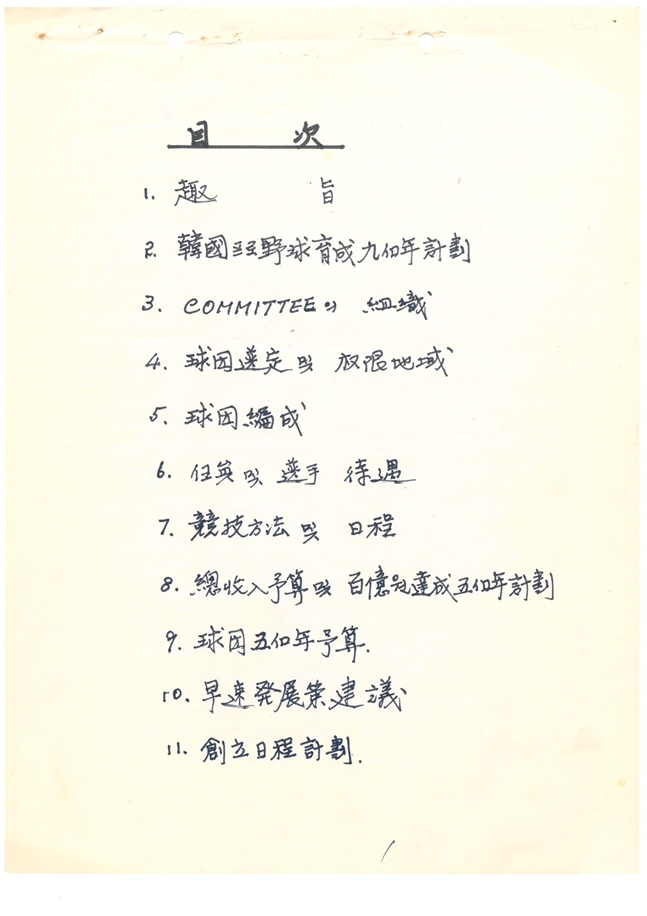 目 次
1. 趣 旨
2. 韓國프로野球育成九個年計劃
3. COMMITTEE의 組織
4. 球団選定 및 权限地域
5. 球団編成
6. 任員 및 選手 待遇
7. 競技方法 및 日程
8. 總收入予算 및 百億원達成五個年計劃
9. 球団五個年予算.
10. 早速発展策建議
11. 創立日程計劃.
1